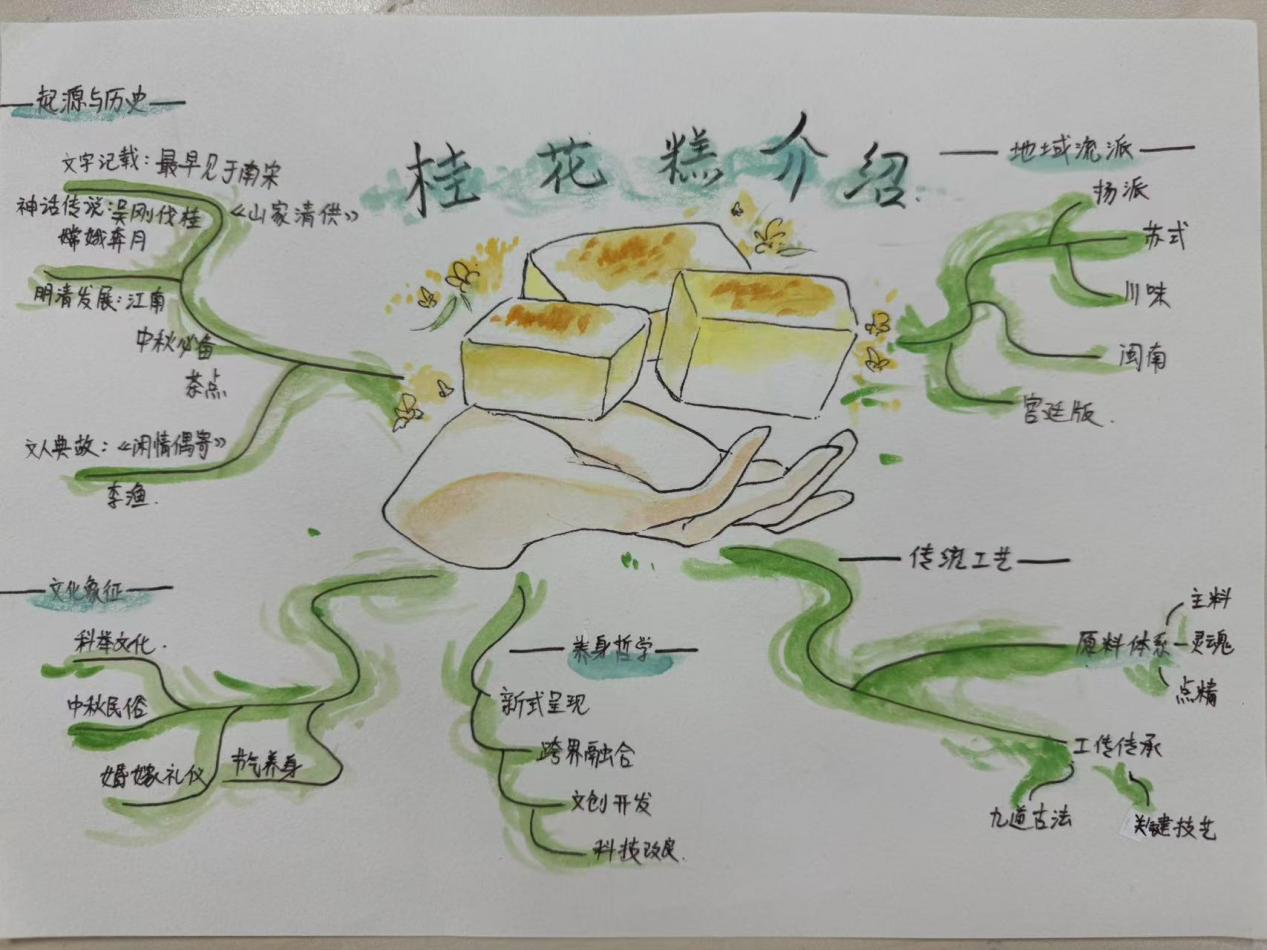 桂花糕介绍.
起源与历史
文字记载：最早见于南宋
《山家清供》
神话传说：吴刚伐桂
嫦娥奔月
明清发展：江南
中秋必备
茶点
文人典故：《闲情偶寄》
李渔.
地域流派
扬派
苏式
川味
闽南
宫廷版.
文化象征
科举文化.
中秋民俗
婚嫁礼仪
节气养身
养身哲学
新式呈现
跨界融合
文创开发
科技改良.
传统工艺
原料体系
主料
灵魂
点精
工传传承
九道古法
关键技艺